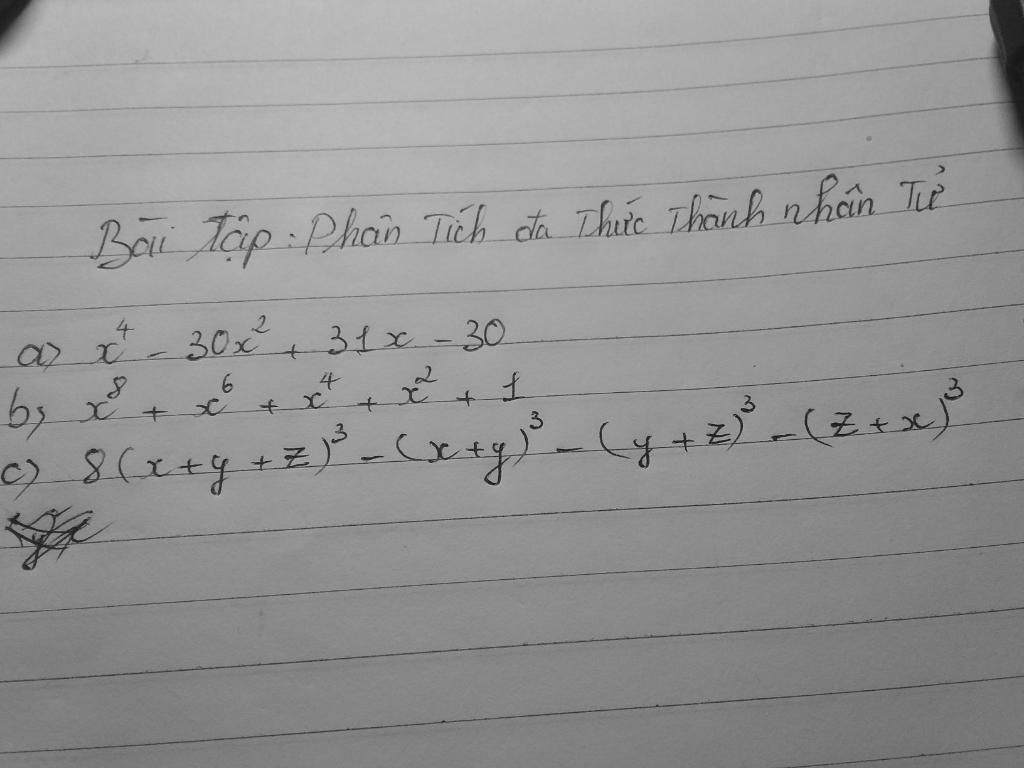 Bài tập: Phân Tích đa Thức Thành nhân Tử
a) x⁴ - 30x² + 31x - 30
b) x⁸ + x⁶ + x⁴ + x² + 1
c) 8(x+y+z)³ - (x+y)³ - (y+z)³ - (z+x)³